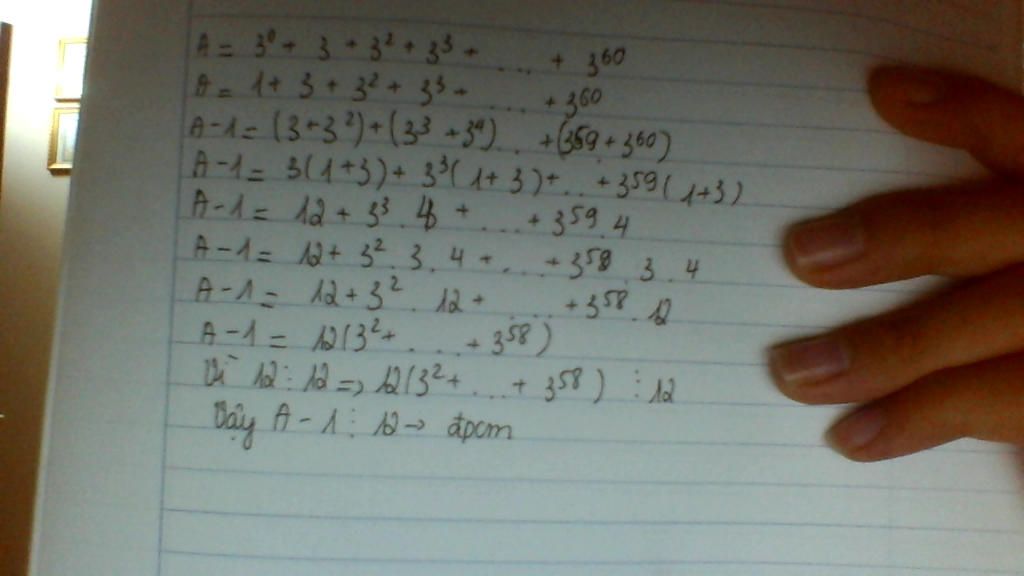 A = 3⁰ + 3 + 3² + 3³ + .... + 3⁶⁰
A = 1 + 3 + 3² + 3³ + .... + 3⁶⁰
A - 1 = (3 + 3²) + (3³ + 3⁴) ... + (3⁵⁹ + 3⁶⁰)
A - 1 = 3(1 + 3) + 3³(1 + 3) + ... + 3⁵⁹(1+3)
A - 1 = 12 + 3³ . 4 + .... + 3⁵⁹ . 4
A - 1 = 12 + 3² . 3 . 4 + .... + 3⁵⁸ . 3 . 4
A - 1 = 12 + 3² . 12 + ..... + 3⁵⁸ . 12
A - 1 = 12(3² + .... + 3⁵⁸)
Vì 12 ⋮ 12 => 12(3² + .... + 3⁵⁸) ⋮ 12
Vậy A - 1 ⋮ 12 → đpcm